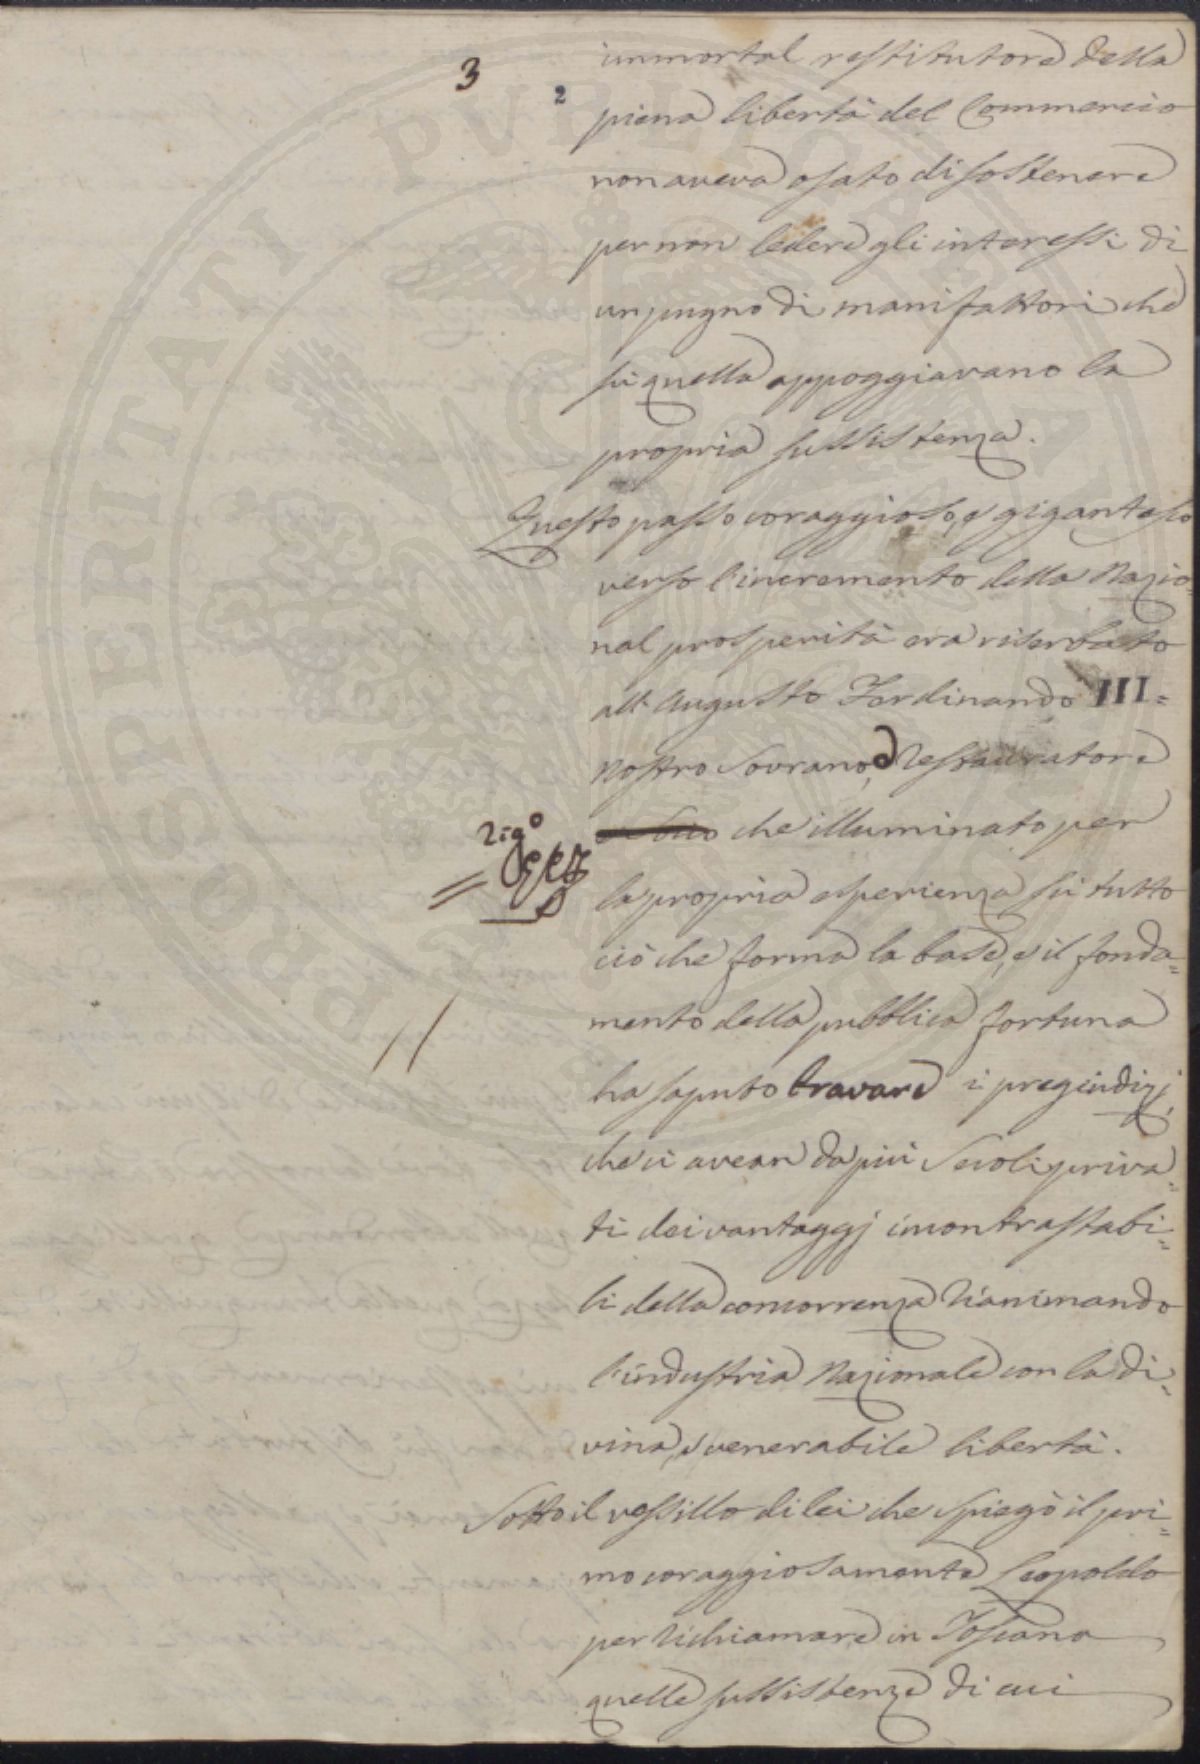 3
2
immortal restitutore della
piena libertà del Commercio
non aveva osato di sostenere
per non ledere gli interessi di
un pugno di manifattori che
sù quella appoggiavano la
propria sussistenza.
Questo passo coraggioso, e gigantesco
verso l'incremento della Nazio
nal prosperità era riserbato
all'Augusto Ferdinando III =
Nostro Sovrano, e Restauratore
che illuminato per
la propria esperienza sù tutto
ciò che forma la base, e il fonda=
mento della pubblica fortuna
ha saputo bravare i pregiudizj,
che ci avean da più Secoli priva=
ti dei vantaggj incontrastabi=
li della concorrenza rianimando
l'industria Nazionale con la di=
vina, e venerabile libertà.
Sotto il vessillo di lei che spiegò il pri=
mo coraggiosamente Leopoldo
per richiamare in Toscana
quelle sussistenze di cui
PROSPERITATI PVBLICAE